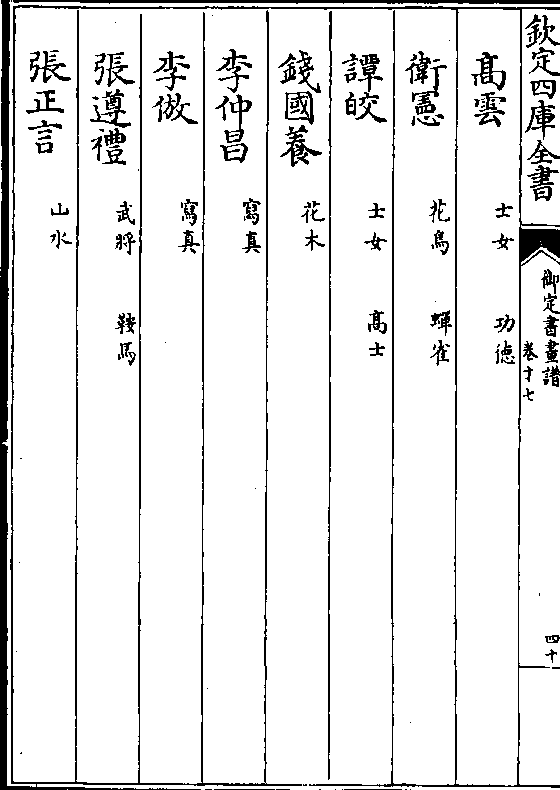 欽定四庫全書
御定書畫譜
卷十七
四十
高雲 士女 功德
衛憲 花鳥 蟬雀
譚皎 士女 高士
錢國養 花木
李仲昌 寫真
李倣 寫真
張遵禮 武將 鞍馬
張正言 山水